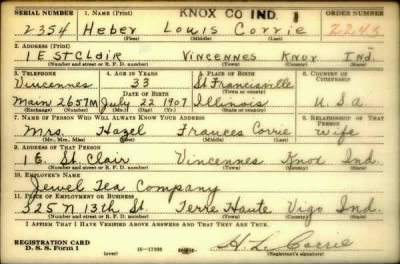 KNOX CO IND. 1
SERIAL NUMBER 1. NAME (Print) ORDER NUMBER
2354 Heber Louis Corrie 2243
(First) (Middle) (Last)
2. ADDRESS (Print)
1 E St Clair Vincennes Knox Ind.
(Number and street or R. F. D. number) (Town) (County) (State)
3. TELEPHONE 4. AGE IN YEARS 5. PLACE OF BIRTH 6. COUNTRY OF CITIZENSHIP
Vincennes 33 St Francisville
DATE OF BIRTH (Town or county)
Main 2657M July 22 1907 Illinois U.S.A.
(Exchange) (Number) (Mo.) (Day) (Yr.) (State or country)
7. NAME OF PERSON WHO WILL ALWAYS KNOW YOUR ADDRESS 8. RELATIONSHIP OF THAT PERSON
Mrs. Hazel Frances Corrie wife
(Mr., Mrs., Miss) (First) (Middle) (Last)
9. ADDRESS OF THAT PERSON
1 E. St. Clair Vincennes Knox Ind.
(Number and street or R. F. D. number) (Town) (County) (State)
10. EMPLOYER'S NAME
Jewel Tea Company
11. PLACE OF EMPLOYMENT OR BUSINESS
325 N 13th St. Terre Haute Vigo Ind.
(Number and street or R. F. D. number) (Town) (County) (State)
I AFFIRM THAT I HAVE VERIFIED ABOVE ANSWERS AND THAT THEY ARE TRUE.
REGISTRATION CARD H. L. Corrie
D. S. S. Form 1 (Registrant's signature)